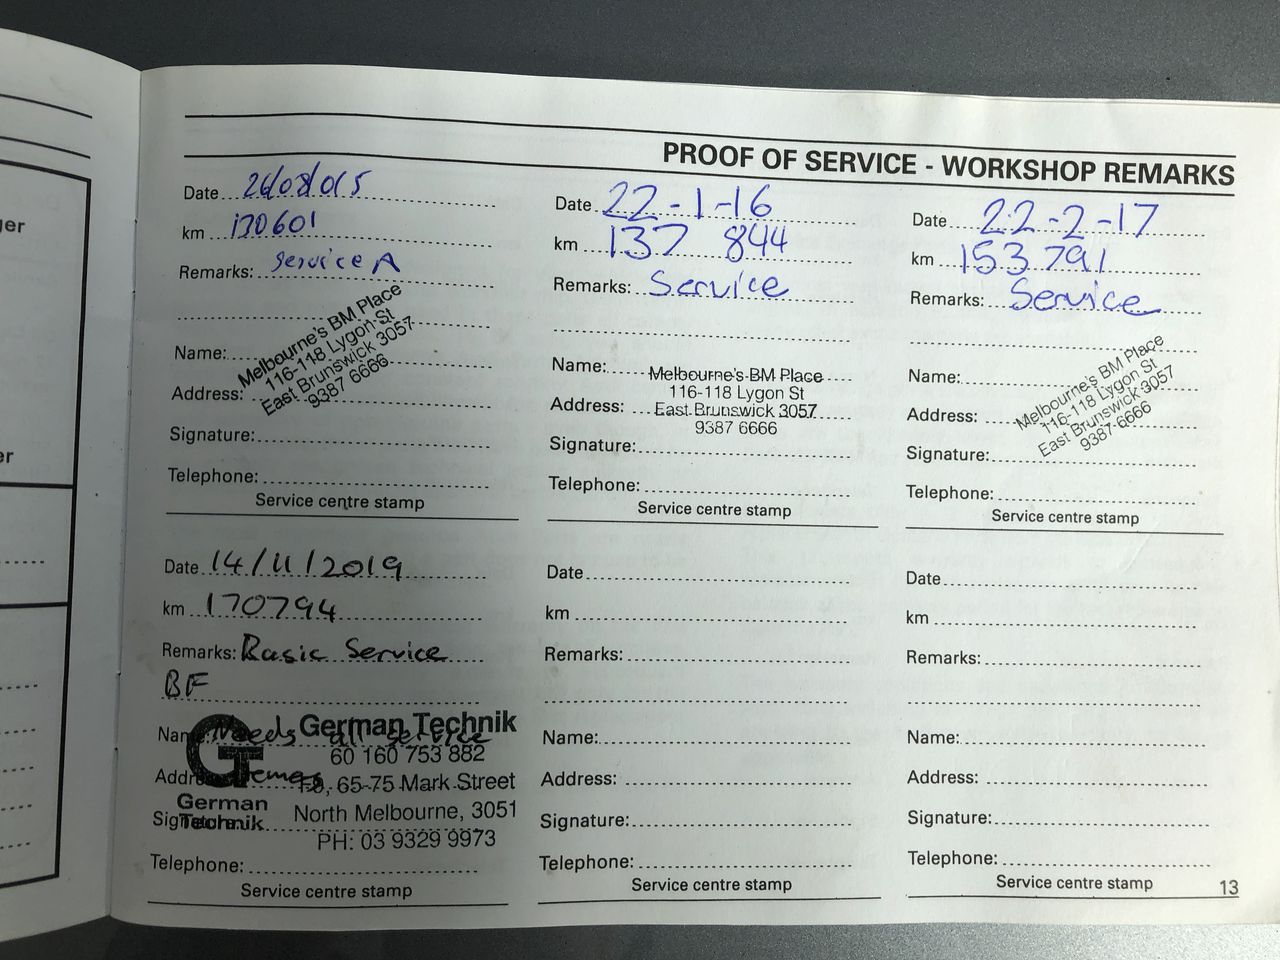 ger
er
PROOF OF SERVICE - WORKSHOP REMARKS
Date 26/08/015
km 130601
Remarks: Service A
Name:
Address:
Melbourne's BM Place
116-118 Lygon St
East Brunswick 3057
9387 6666
Signature:
Telephone:
Service centre stamp
Date 22-1-16
km 137 844
Remarks: Service
Name:
Address:
Melbourne's BM Place
116-118 Lygon St
East Brunswick 3057
9387 6666
Signature:
Telephone:
Service centre stamp
Date 22-2-17
km 153 791
Remarks: Service
Name:
Address:
Melbourne's BM Place
116-118 Lygon St
East Brunswick 3057
9387 6666
Signature:
Telephone:
Service centre stamp
Date 14/11/2019
km 170794
Remarks: Basic Service
BF
Needs all service
GT
German Technik
German Technik
60 160 753 882
65-75 Mark Street
North Melbourne, 3051
PH: 03 9329 9973
Telephone:
Service centre stamp
Date
km
Remarks:
Name:
Address:
Signature:
Telephone:
Service centre stamp
Date
km
Remarks:
Name:
Address:
Signature:
Telephone:
Service centre stamp
13